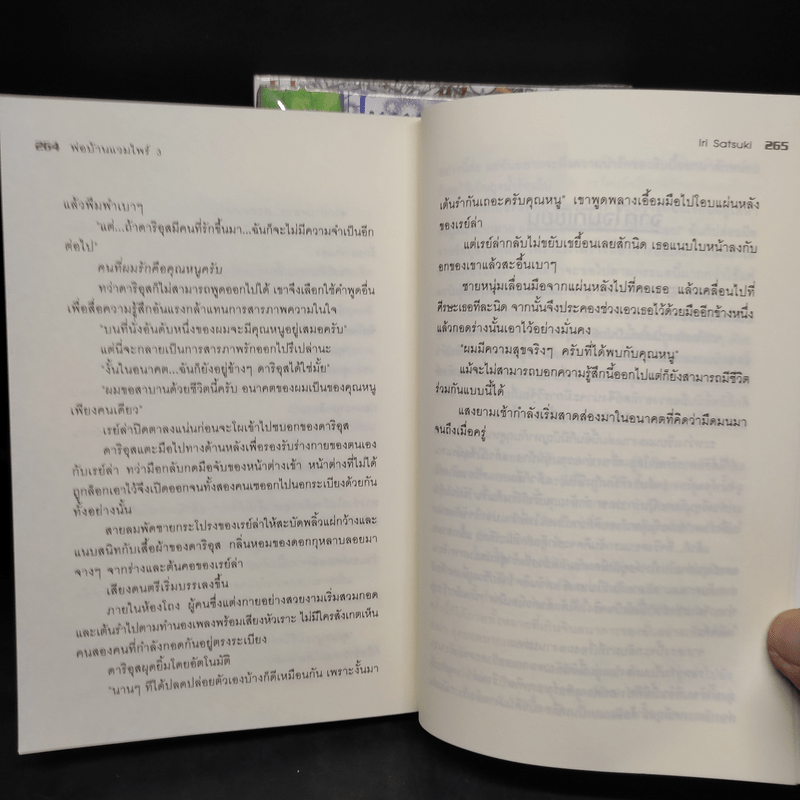 264 พ่อบ้านแวมไพร์ 3
แล้วพึมพำเบาๆ
"แต่...ถ้าดาริอุสมีคนที่รักขึ้นมา...ฉันก็จะไม่มีความจำเป็นอีก
ต่อไป"
คนที่ผมรักคือคุณหนูครับ
ทว่าดาริอุสก็ไม่สามารถพูดออกไปได้ เขาจึงเลือกใช้คำพูดอื่น
เพื่อสื่อความรู้สึกอันแรงกล้าแทนการสารภาพความในใจ
"บนที่นั่งอันดับหนึ่งของผมจะมีคุณหนูอยู่เสมอครับ"
แต่นี่จะกลายเป็นการสารภาพรักออกไปรึเปล่านะ
"งั้นในอนาคต...ฉันก็ยังอยู่ข้างๆ ดาริอุสได้ใช่มั้ย"
"ผมขอสาบานด้วยชีวิตนี้ครับ อนาคตของผมเป็นของคุณหนู
เพียงคนเดียว"
เรย์ล่าปิดตาลงแน่นก่อนจะโผเข้าไปซบอกของดาริอุส
ดาริอุสแตะมือไปทางด้านหลังเพื่อรองรับร่างกายของตนเอง
กับเรย์ล่า ทว่ามือกลับกดมือจับของหน้าต่างเข้า หน้าต่างที่ไม่ได้
ถูกล็อกเอาไว้จึงเปิดออกจนทั้งสองคนเซออกไปนอกระเบียงด้วยกัน
ทั้งอย่างนั้น
สายลมพัดชายกระโปรงของเรย์ล่าให้สะบัดพลิ้วแผ่กว้างและ
แนบสนิทกับเสื้อผ้าของดาริอุส กลิ่นหอมของดอกกุหลาบลอยมา
จางๆ จากร่างและต้นคอของเรย์ล่า
เสียงดนตรีเริ่มบรรเลงขึ้น
ภายในห้องโถง ผู้คนซึ่งแต่งกายอย่างสวยงามเริ่มสวมกอด
และเต้นรำไปตามทำนองเพลงพร้อมเสียงหัวเราะ ไม่มีใครสังเกตเห็น
คนสองคนที่กำลังกอดกันอยู่ตรงระเบียง
ดาริอุสผุดยิ้มโดยอัตโนมัติ
"นานๆ ทีได้ปลดปล่อยตัวเองบ้างก็ดีเหมือนกัน เพราะงั้นมา
Iri Satsuki 265
เต้นรำกันเถอะครับคุณหนู" เขาพูดพลางเอื้อมมือไปโอบแผ่นหลัง
ของเรย์ล่า
แต่เรย์ล่ากลับไม่ขยับเขยื้อนเลยสักนิด เธอแนบใบหน้าลงกับ
อกของเขาแล้วสะอื้นเบาๆ
ชายหนุ่มเลื่อนมือจากแผ่นหลังไปที่คอเธอ แล้วเคลื่อนไปที่
ศีรษะเธอทีละนิด จากนั้นจึงประคองช่วงเอวเธอไว้ด้วยมืออีกข้างหนึ่ง
แล้วกอดร่างนั้นเอาไว้อย่างมั่นคง
"ผมมีความสุขจริงๆ ครับที่ได้พบกับคุณหนู"
แม้จะไม่สามารถบอกความรู้สึกนี้ออกไปแต่ก็ยังสามารถมีชีวิต
ร่วมกันแบบนี้ได้
แสงยามเช้ากำลังเริ่มสาดส่องมาในอนาคตที่คิดว่ามืดมนมา
จนถึงเมื่อครู่